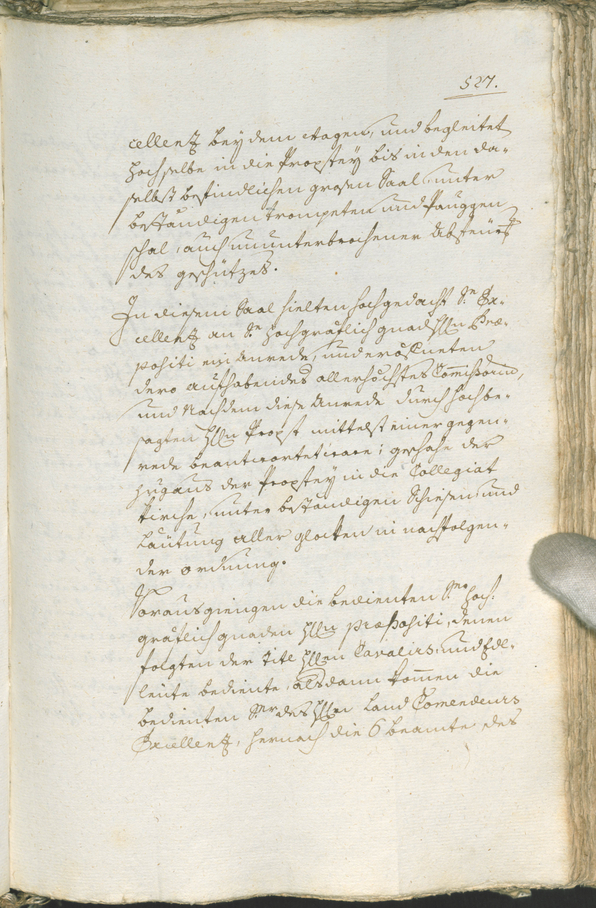 527.
cellentz bey dem Wagen, und begleitet
hochselbe in die Propstey bis in den da-
selbst befindlichen grosen Saal, unter
beständigen Trompeten und Pauggen
schal, auch ununterbrochener Abfeür
des geschützes.
In diesem Saal hielten hochgedacht Sr Ex-
cellentz an Sr hochgräflich gnad Hlln Præ-
positi ein Anrede, und eröfneten
dero aufhabendes allerhöchstes Commissorium,
und Nachdem diese Anrede durch hochbe-
sagten Hlln Propst mittelst einer gegen-
rede beantwortet ware; geschahe der
Zug aus der Propstey in die Collegiat
Kirche, unter beständigen Schiesen und
Läutung aller glocken in nachfolgen-
der ordnung.
Voraus giengen die bedienten Sr hoch-
gräflich gnaden Hlln Præpositi, denen
folgten der Titl Hllen Cavaliers, und Edl-
leüte bediente, alsdann kommen die
bedienten Sr des Hlln Land Comendeurs
Excellentz, hernach die 6 beamte des